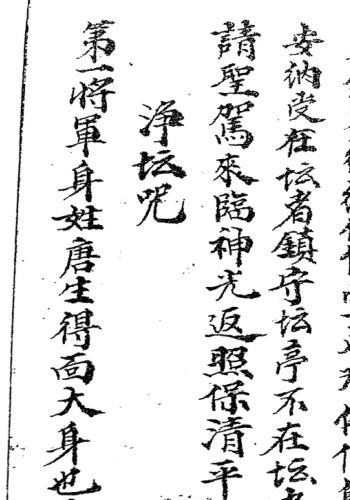 安納受在坛者鎮守坛亭不在坛
請聖駕來臨神光返照保清平
净坛咒
第一將軍身姓唐生得面大身也